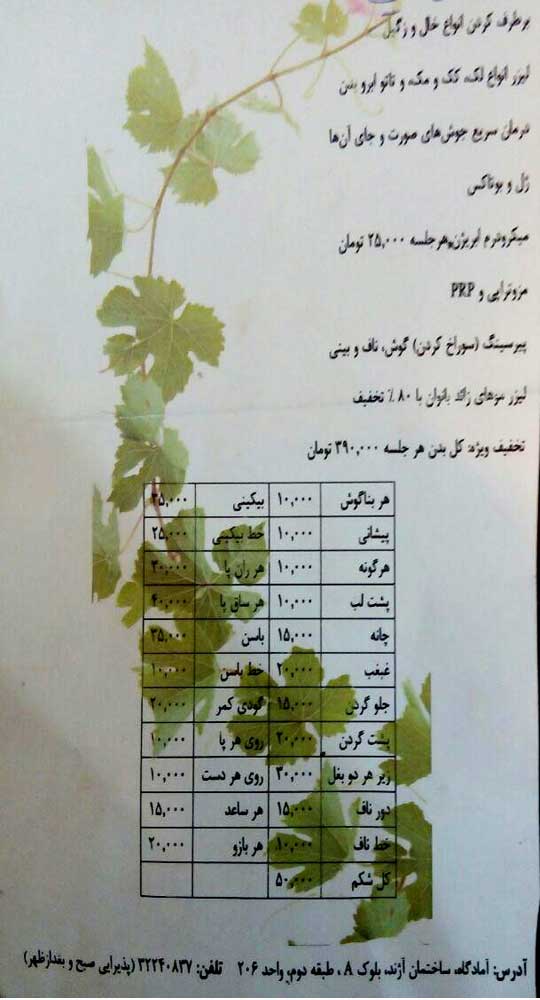 برطرف کردن انواع خال و زگیل
لیزر انواع لک، کک و مک، و تاتو ابرو بدن
درمان سریع جوش‌های صورت و جای آن‌ها
ژل و بوتاکس
میکرودرم ابریژن هر جلسه ۲۵,۰۰۰ تومان
مزوتراپی و PRP
پیرسینگ (سوراخ کردن) گوش، ناف و بینی
لیزر موهای زائد بانوان با ۸۰ ٪ تخفیف
تخفیف ویژه: کل بدن هر جلسه ۳۹۰,۰۰۰ تومان
هر بناگوش ۱۰,۰۰۰ بیکینی ۳۵,۰۰۰
پیشانی ۱۰,۰۰۰ خط بیکینی ۲۵,۰۰۰
هرگونه ۱۰,۰۰۰ هر ران پا ۳۰,۰۰۰
پشت لب ۱۰,۰۰۰ هر ساق پا ۴۰,۰۰۰
چانه ۱۵,۰۰۰ باسن ۳۵,۰۰۰
غبغب ۲۰,۰۰۰ خط باسن ۱۰,۰۰۰
جلو گردن ۱۵,۰۰۰ گودی کمر ۲۰,۰۰۰
پشت گردن ۲۰,۰۰۰ روی هر پا ۱۰,۰۰۰
زیر هر دو بغل ۳۰,۰۰۰ روی هر دست ۱۰,۰۰۰
دور ناف ۱۵,۰۰۰ هر ساعد ۱۵,۰۰۰
خط ناف ۱۰,۰۰۰ هر بازو ۲۰,۰۰۰
کل شکم ۵۰,۰۰۰
آدرس: آمادگاه، ساختمان آژند، بلوک A ، طبقه دوم، واحد ۲۰۶ تلفن: ۳۲۲۴۰۸۳۷ (پذیرایی صبح و بعدازظهر)